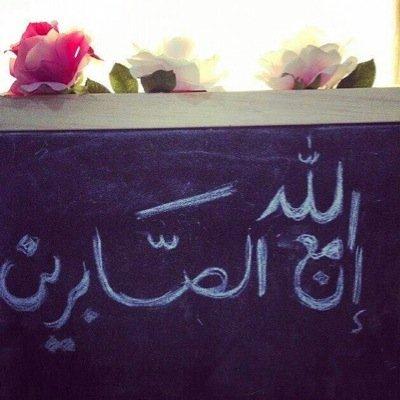 إن الله مع الصَّابرين